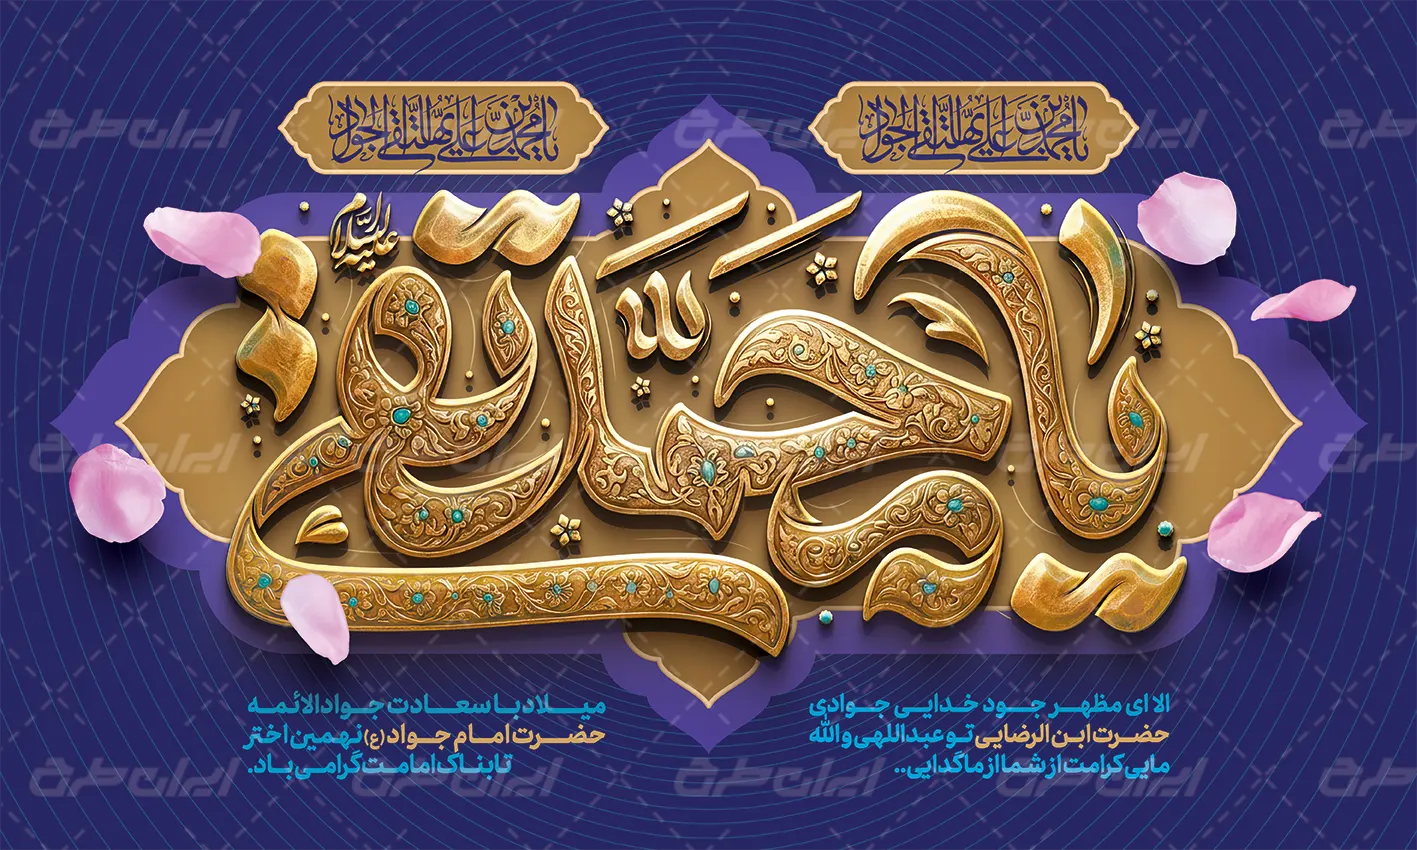 یا محمد بن علی ایها التقی الجواد
یا محمد بن علی ایها التقی الجواد
علیه السلام
یا محمد تقی
الا ای مظهر جود خدایی جوادی
حضرت ابن الرضایی تو عبداللهی و الله
مایی کرامت از شما از ما گدایی..
میلاد با سعادت جواد الائمه
حضرت امام جواد (ع) نهمین اختر
تابناک امامت گرامی باد.
ایران طرح